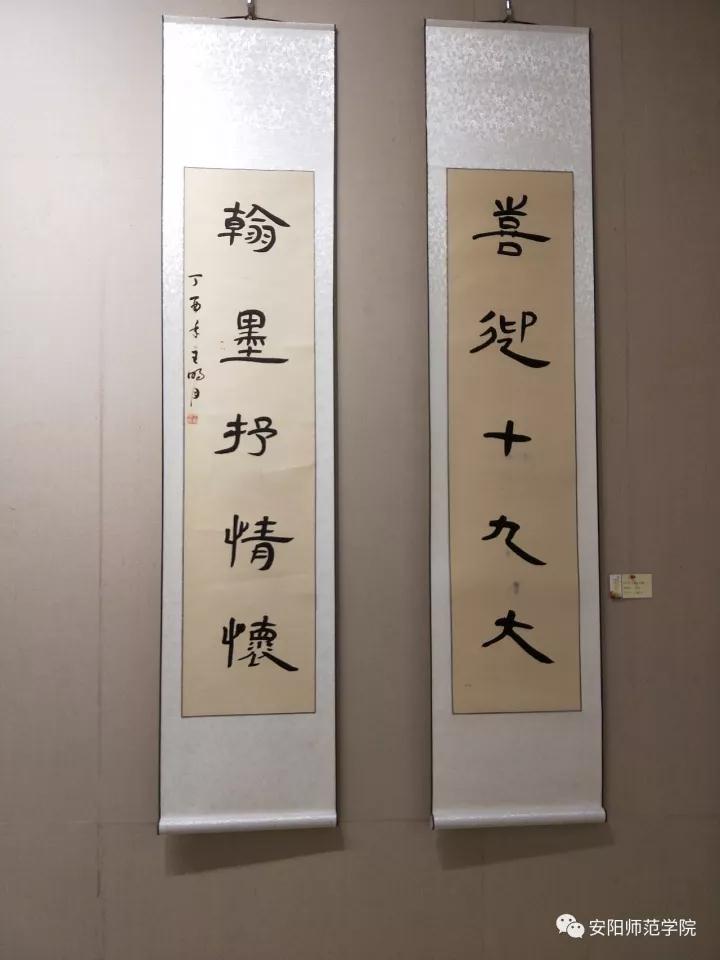 喜迎十九大
翰墨抒情懷
丁酉年王明月
安阳师范学院